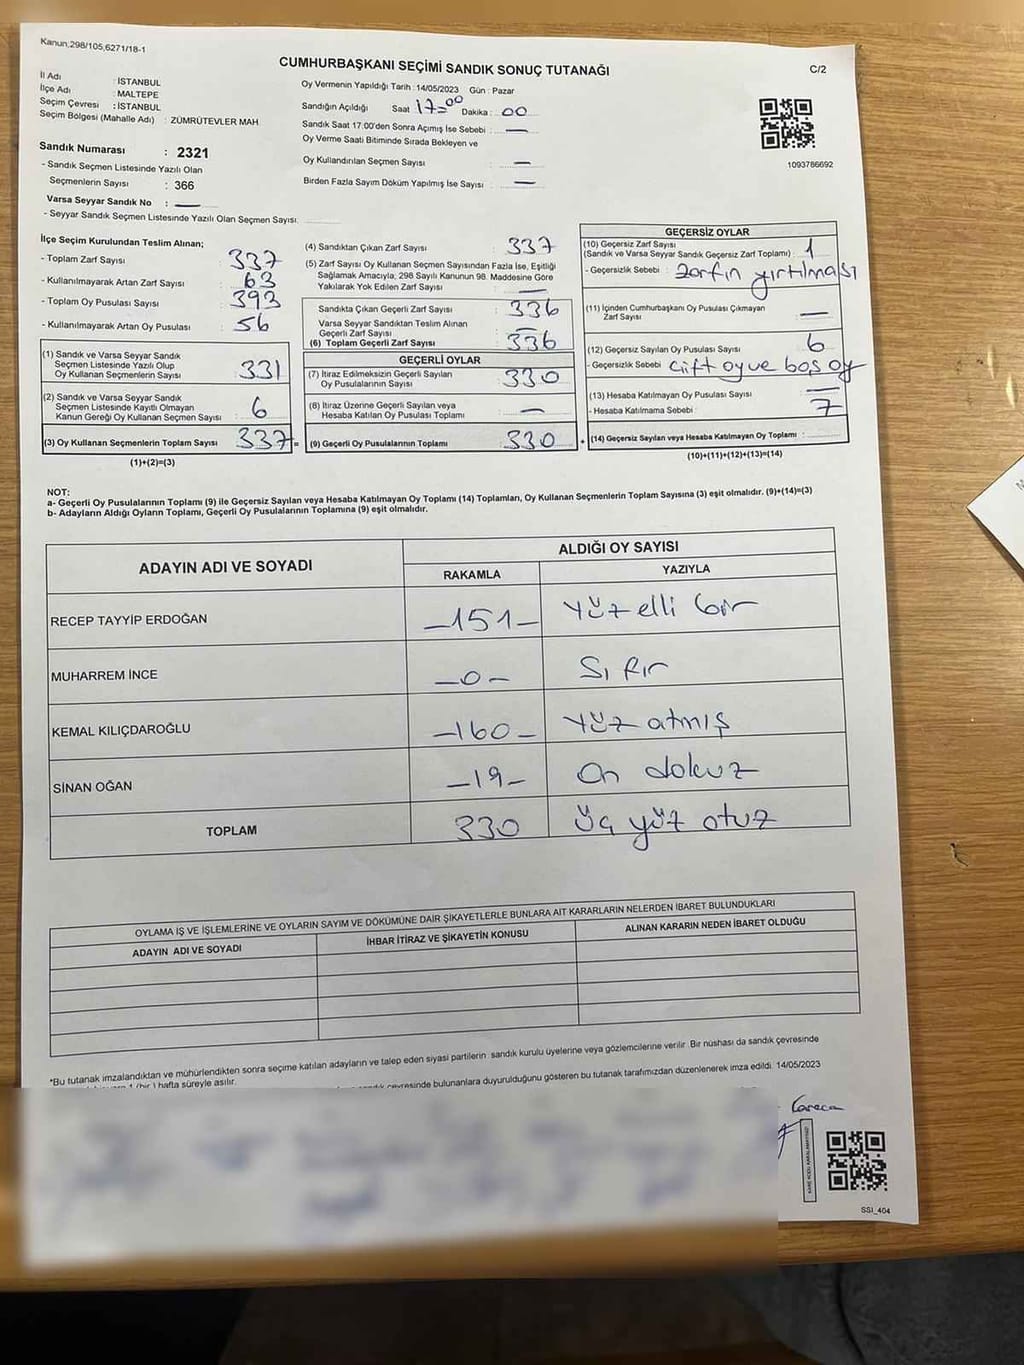 Kanun;298/105,6271/18-1
CUMHURBAŞKANI SEÇİMİ SANDIK SONUÇ TUTANAĞI
C/2
İl Adı : İSTANBUL
İlçe Adı : MALTEPE
Seçim Çevresi : İSTANBUL
Seçim Bölgesi (Mahalle Adı) : ZÜMRÜTEVLER MAH.
Sandık Numarası : 2321
- Sandık Seçmen Listesinde Yazılı Olan
Seçmenlerin Sayısı : 366
Varsa Seyyar Sandık No : —
- Seyyar Sandık Seçmen Listesinde Yazılı Olan Seçmen Sayısı:
Oy Vermenin Yapıldığı Tarih : 14/05/2023 Gün : Pazar
Sandığın Açıldığı Saat 17=00 Dakika : 00
Sandık Saat 17:00'den Sonra Açımış İse Sebebi : —
Oy Verme Saati Bitiminde Sırada Bekleyen ve
Oy Kullandırılan Seçmen Sayısı : —
Birden Fazla Sayım Döküm Yapılmış İse Sayısı : —
1093786692
İlçe Seçim Kurulundan Teslim Alınan;
- Toplam Zarf Sayısı : 337
- Kullanılmayarak Artan Zarf Sayısı : 63
- Toplam Oy Pusulası Sayısı : 393
- Kullanılmayarak Artan Oy Pusulası : 56
(1) Sandık ve Varsa Seyyar Sandık
Seçmen Listesinde Yazılı Olup
Oy Kullanan Seçmenlerin Sayısı : 331
(2) Sandık ve Varsa Seyyar Sandık
Seçmen Listesinde Kayıtlı Olmayan
Kanun Gereği Oy Kullanan Seçmen Sayısı : 6
(3) Oy Kullanan Seçmenlerin Toplam Sayısı : 337 =
(1)+(2)=(3)
(4) Sandıktan Çıkan Zarf Sayısı : 337
(5) Zarf Sayısı Oy Kullanan Seçmen Sayısından Fazla İse, Eşitliği
Sağlamak Amacıyla; 298 Sayılı Kanunun 98. Maddesine Göre
Yakılarak Yok Edilen Zarf Sayısı : —
Sandıkta Çıkan Geçerli Zarf Sayısı : 336
Varsa Seyyar Sandıktan Teslim Alınan
Geçerli Zarf Sayısı : —
(6) Toplam Geçerli Zarf Sayısı : 336
GEÇERLİ OYLAR
(7) İtiraz Edilmeksizin Geçerli Sayılan
Oy Pusulalarının Sayısı : 330
(8) İtiraz Üzerine Geçerli Sayılan veya
Hesaba Katılan Oy Pusulası Toplamı : —
(9) Geçerli Oy Pusulalarının Toplamı : 330 +
GEÇERSİZ OYLAR
(10) Geçersiz Zarf Sayısı
(Sandık ve Varsa Seyyar Sandık Geçersiz Zarf Toplamı) : 1
- Geçersizlik Sebebi : Zarfın yırtılması
(11) İçinden Cumhurbaşkanı Oy Pusulası Çıkmayan
Zarf Sayısı : —
(12) Geçersiz Sayılan Oy Pusulası Sayısı : 6
- Geçersizlik Sebebi : çift oy ve boş oy
(13) Hesaba Katılmayan Oy Pusulası Sayısı : —
- Hesaba Katılmama Sebebi : 7
(14) Geçersiz Sayılan veya Hesaba Katılmayan Oy Toplamı :
(10)+(11)+(12)+(13)=(14)
NOT:
a- Geçerli Oy Pusulalarının Toplamı (9) ile Geçersiz Sayılan veya Hesaba Katılmayan Oy Toplamı (14) Toplamları, Oy Kullanan Seçmenlerin Toplam Sayısına (3) eşit olmalıdır. (9)+(14)=(3)
b- Adayların Aldığı Oyların Toplamı, Geçerli Oy Pusulalarının Toplamına (9) eşit olmalıdır.
ADAYIN ADI VE SOYADI
ALDIĞI OY SAYISI
RAKAMLA YAZIYLA
RECEP TAYYİP ERDOĞAN —151— Yüz elli bir
MUHARREM İNCE —0— Sıfır
KEMAL KILIÇDAROĞLU —160— Yüz atmış
SİNAN OĞAN —19— On dokuz
TOPLAM 330 Üç yüz otuz
OYLAMA İŞ VE İŞLEMLERİNE VE OYLARIN SAYIM VE DÖKÜMÜNE DAİR ŞİKAYETLERLE BUNLARA AİT KARARLARIN NELERDEN İBARET BULUNDUKLARI
ADAYIN ADI VE SOYADI İHBAR İTİRAZ VE ŞİKAYETİN KONUSU ALINAN KARARIN NEDEN İBARET OLDUĞU
*Bu tutanak imzalandıktan ve mühürlendikten sonra seçime katılan adayların ve talep eden siyasi partilerin sandık kurulu üyelerine veya gözlemcilerine verilir. Bir nüshası da sandık çevresinde
1 (bir) hafta süreyle asılır.
sandık çevresinde bulunanlara duyurulduğunu gösteren bu tutanak tarafımızdan düzenlenerek imza edildi. 14/05/2023
Karaca
KARE KODU KARALAMAYINIZ!
SSI_404